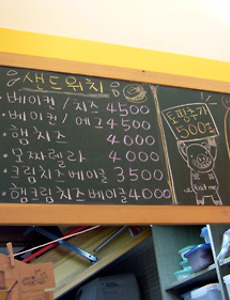 샌드위치
· 베이컨 / 치즈 4500
· 베이컨 / 에그 4500
· 햄 치즈 4000
· 모짜렐라 4000
· 크림치즈베이글 3500
· 햄크림치즈베이글 4000
토핑추가
500원
eat me